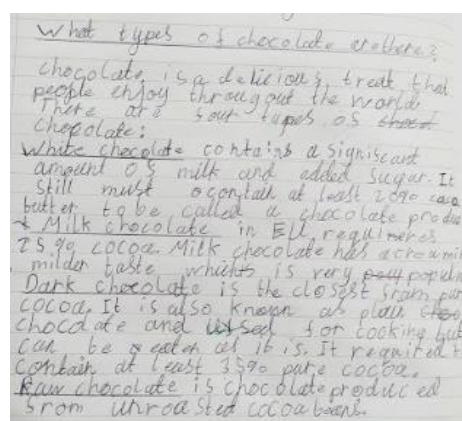 What types of chocolate arethere?
Chocolate is a delicious treat that
people enjoy througout the world
There are four types of
chocolate:
White chocolate contains a significant
amount of milk and added sugar. It
still must contain at least 20%
butter to be called a chocolate produ
Milk chocolate in EU requieres
25% cocoa. Milk chocolate has a creami
milder taste which is very popula
Dark chocolate is the closest from pur
cocoa. It is also known as plain
chocolate and used for cocking but
can be eaten as it is. It required t
contain at least 35% pure cocoa.
Raw chocolate is chocolate produced
from unroasted cocoa beans.